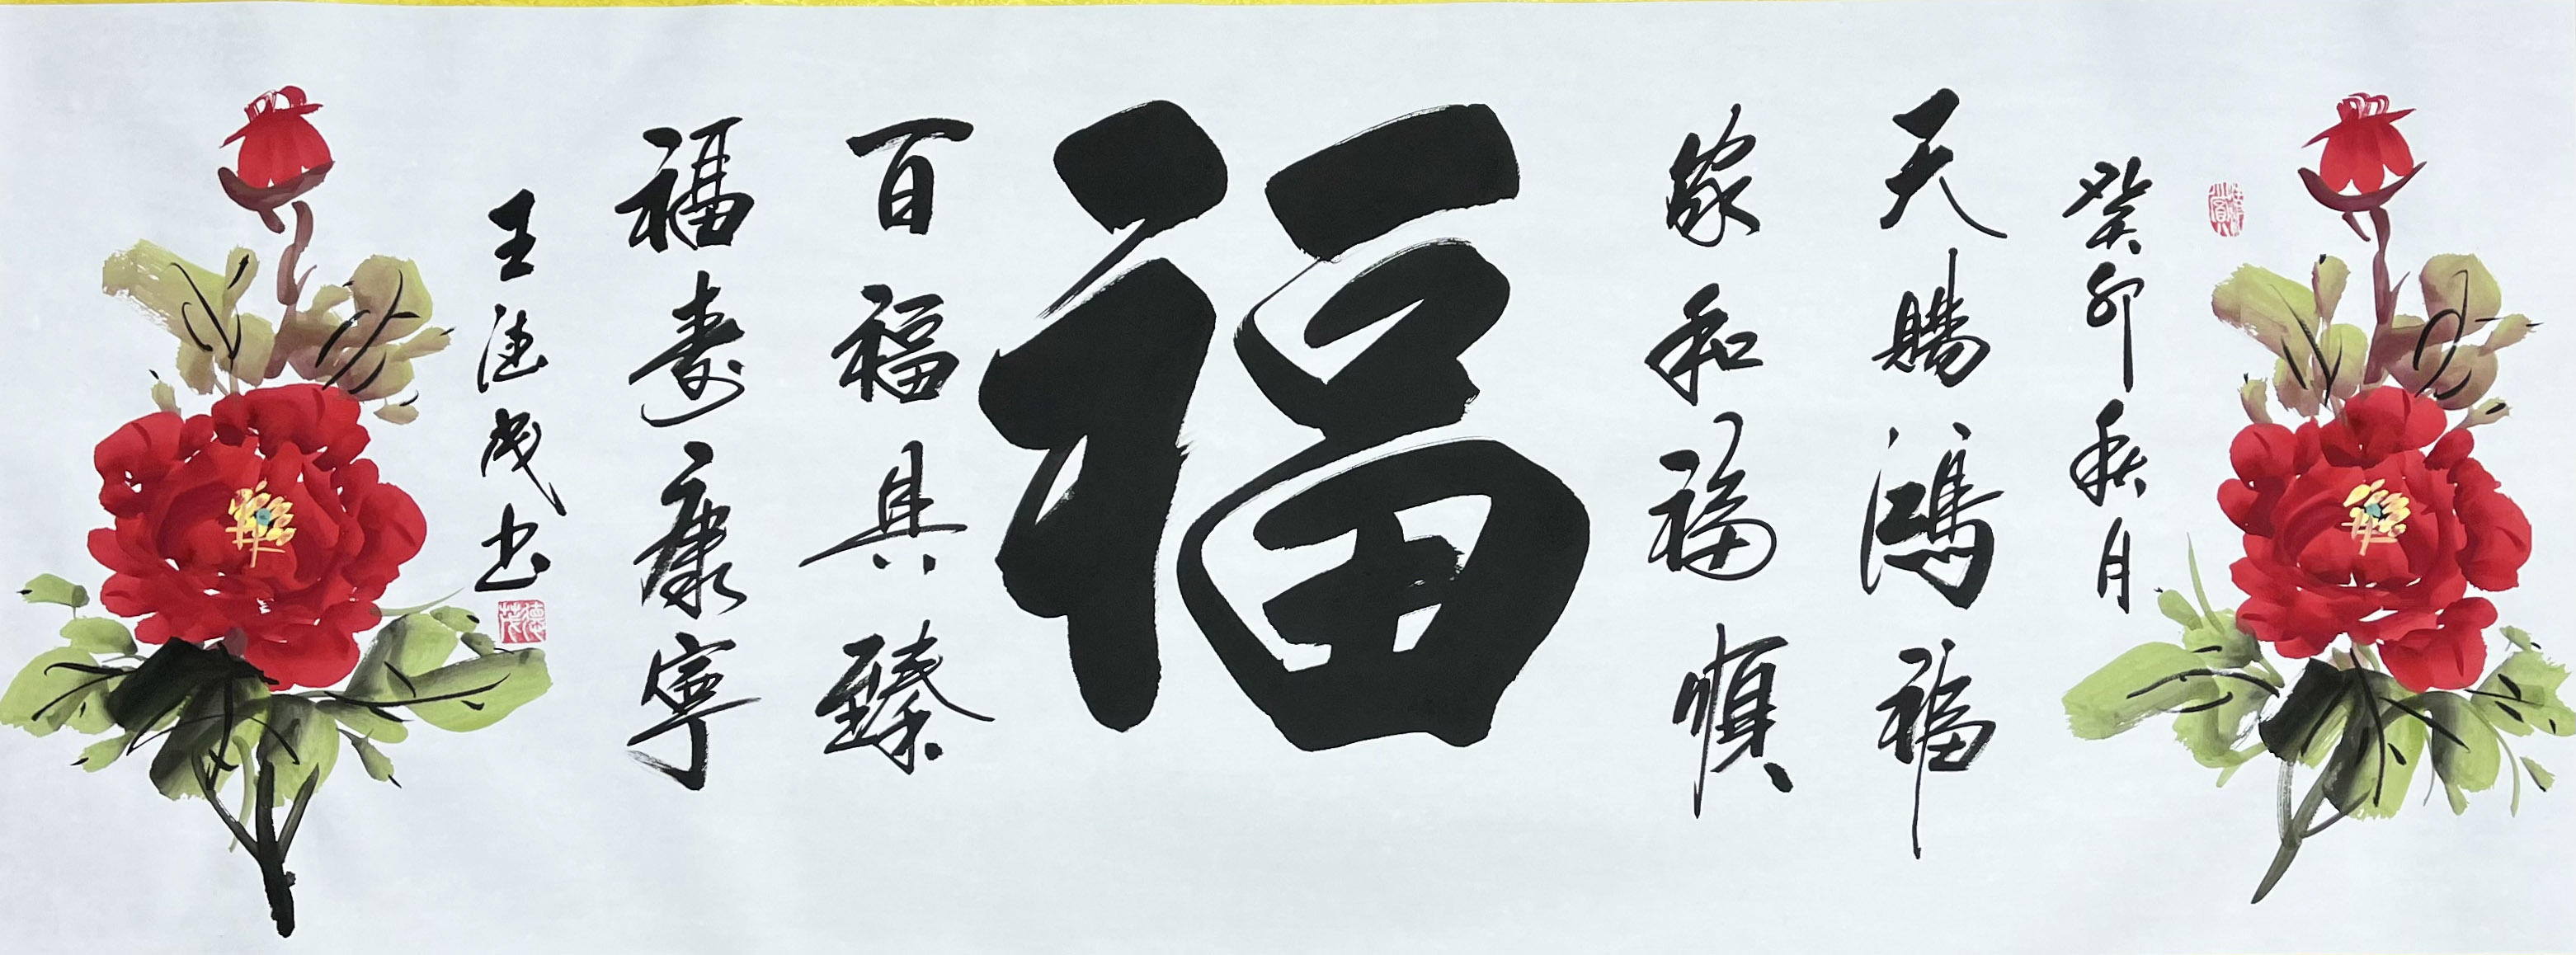 癸卯秋月
天賜鴻福
家和福順
福
百福具臻
福壽康寧
王德茂书
德茂